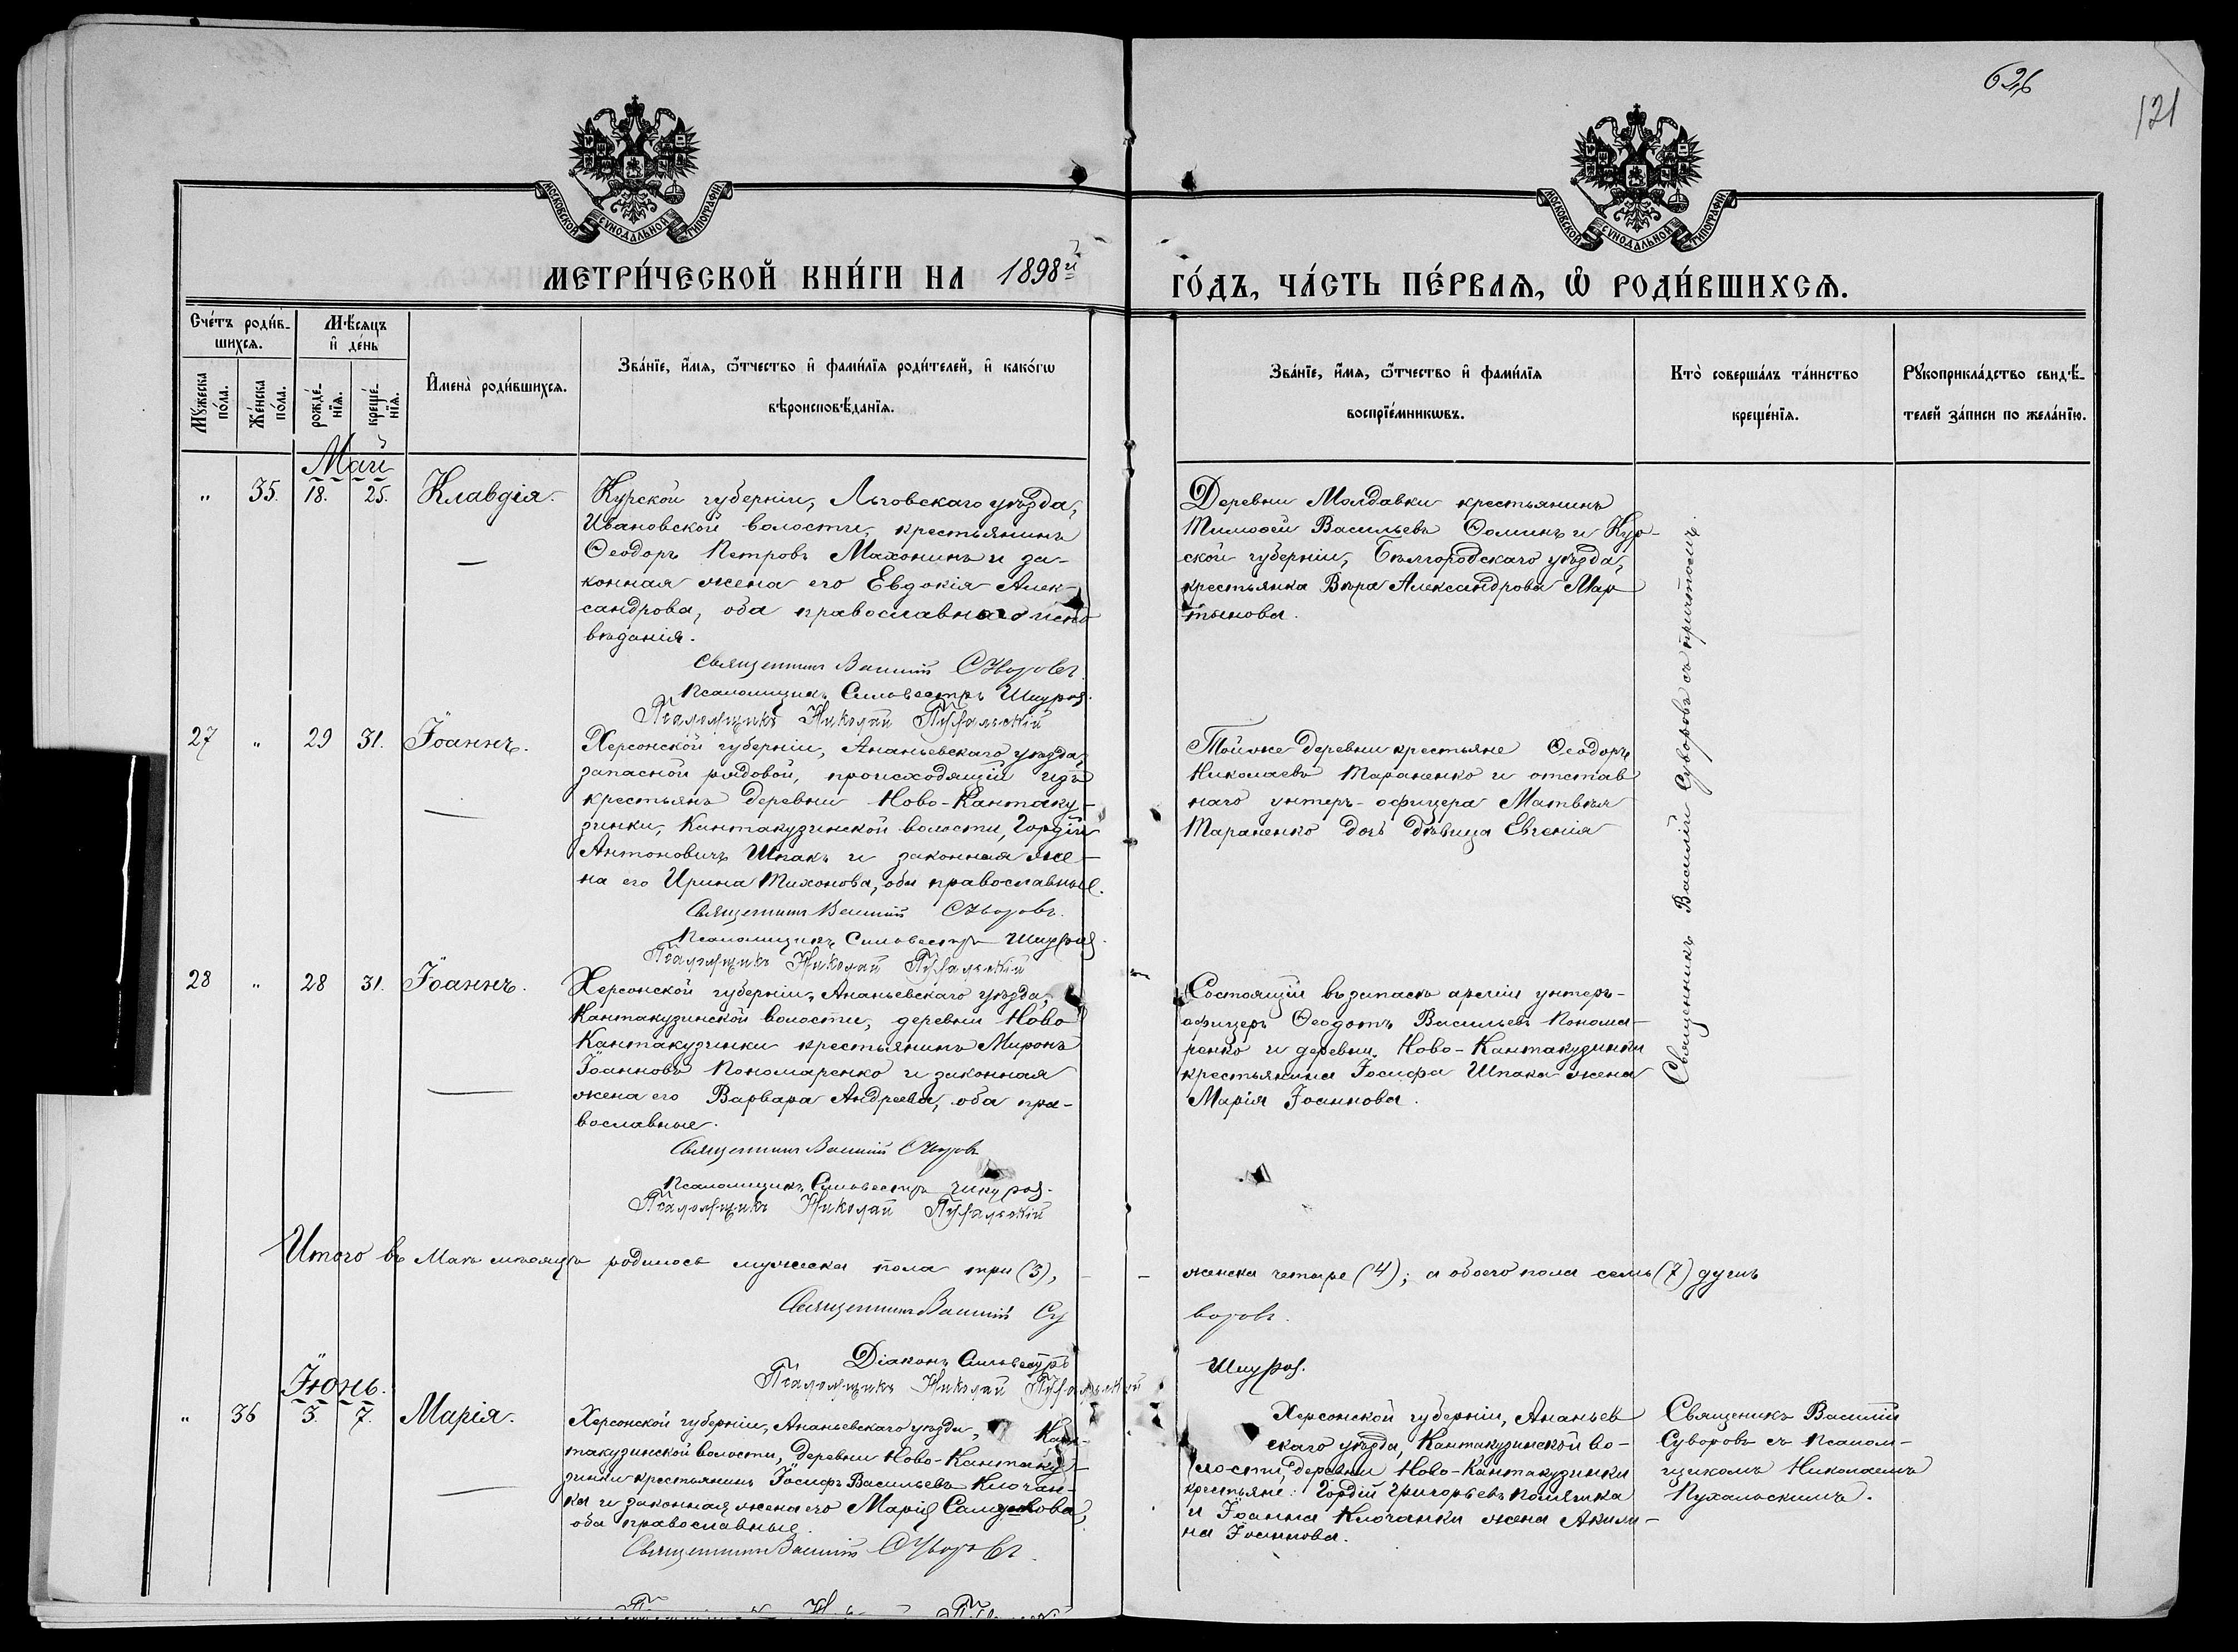 626
121
МОСКОВСКОЙ СѴНОДАЛЬНОЙ ТИПОГРАФІИ
МОСКОВСКОЙ СѴНОДАЛЬНОЙ ТИПОГРАФІИ
МЕТРИ́ЧЕСКОЙ КНИ́ГИ НА 1898й ГО́ДЪ, ЧА́СТЬ ПЕ́РВАѦ, Ѽ РОДИ́ВШИХСѦ.
Сче́тъ роди́в-
шихсѧ.
Мѣсѧцъ
и҆ де́нь
Мꙋжеска
по́ла.
Же́нска
по́ла.
рожде́-
нїѧ.
креще́-
нїѧ.
И҆мена̀ роди́вшихсѧ.
Зва́нїе, и҆́мѧ, ѻ҆́тчество и҆ фами́лїѧ роди́телей, и҆ како́гѡ
вѣроисповѣ́данїѧ.
Зва́нїе, и҆́мѧ, ѻ҆́тчество и҆ фами́лїѧ
воспрїе́мникѡвъ.
Кто̀ соверша́лъ та́инство
креще́нїѧ.
Рꙋкоприкла́дство свидѣ́-
телей за́писи по жела́нїю.
Май
" 35. 18. 25. Клавдія.
Курской губерніи, Льговскаго уѣзда,
Ивановской волости, крестьянинъ
Ѳеодоръ Петровъ Махонинъ и за-
конная жена его Евдокія Алек-
сандрова, оба православнаго испо
вѣданія.
Священникъ Василій Суворовъ
Псаломщикъ Сильвестръ
Псаломщикъ Николай Пухальскій
Деревни Молдавки крестьянинъ
Тимоѳей Васильевъ Ѳоминъ и Кур-
ской губерніи, Бѣлгородскаго уѣзда,
крестьянка Вѣра Александрова Мар
тынова.
Священникъ Василій Суворовъ съ причтомъ.
27 " 29 31. Іоаннъ.
Херсонской губерніи, Ананьевскаго уѣзда,
запасной рядовой, происходящій изъ
крестьянъ деревни Ново-Кантаку-
зинки, Кантакузинской волости, Гордій
Антоновичъ Шпакъ и законная же-
на его Ирина Тихонова, оба православные.
Священникъ Василій Суворовъ.
Псаломщикъ Сильвестръ
Псаломщикъ Николай Пухальскій
Той же деревни крестьяне Ѳеодоръ
Николаевъ Тараненко и отстав
наго унтеръ-офицера Матвѣя
Тараненко дочь дѣвица Евгенія
28 " 28 31. Іоаннъ.
Херсонской губерніи, Ананьевскаго уѣзда,
Кантакузинской волости, деревни Ново
Кантакузинки крестьянинъ Миронъ
Іоанновъ Пономаренко и законная
жена его Варвара Андреева, оба пра-
вославные.
Священникъ Василій Суворовъ
Псаломщикъ Сильвестръ
Псаломщикъ Николай Пухальскій
Состоящій въ запасѣ арміи унтеръ-
офицеръ Ѳеодотъ Васильевъ Понома-
ренко и деревни Ново-Кантакузинки
крестьянина Іосифа Шпака жена
Марія Іоаннова.
Итого въ Маѣ мѣсяцѣ родилось мужеска пола три (3), - - женска четыре (4); а обоего пола семь (7) душъ
Священникъ Василій Су воровъ.
Діаконъ Сильвестръ
Псаломщикъ Николай Пухальскій
Іюнь.
" 36 3. 7. Марія.
Херсонской губерніи, Ананьевскаго уѣзда, Кан-
такузинской волости, деревни Ново-Кантаку-
зинки крестьянинъ Іосифъ Васильевъ Клочан-
ка и законная жена его Марія
оба православные.
Священникъ Василій Суворовъ.
Херсонской губерніи, Ананьев
скаго уѣзда, Кантакузинской во-
лости, деревни Ново-Кантакузинки
крестьяне: Гордій Григорьевъ
и Іоанна Клочанки жена Акили-
на Іоаннова.
Священикъ Василій
Суворовъ съ Псалом-
щикомъ Николаемъ
Пухальскимъ.